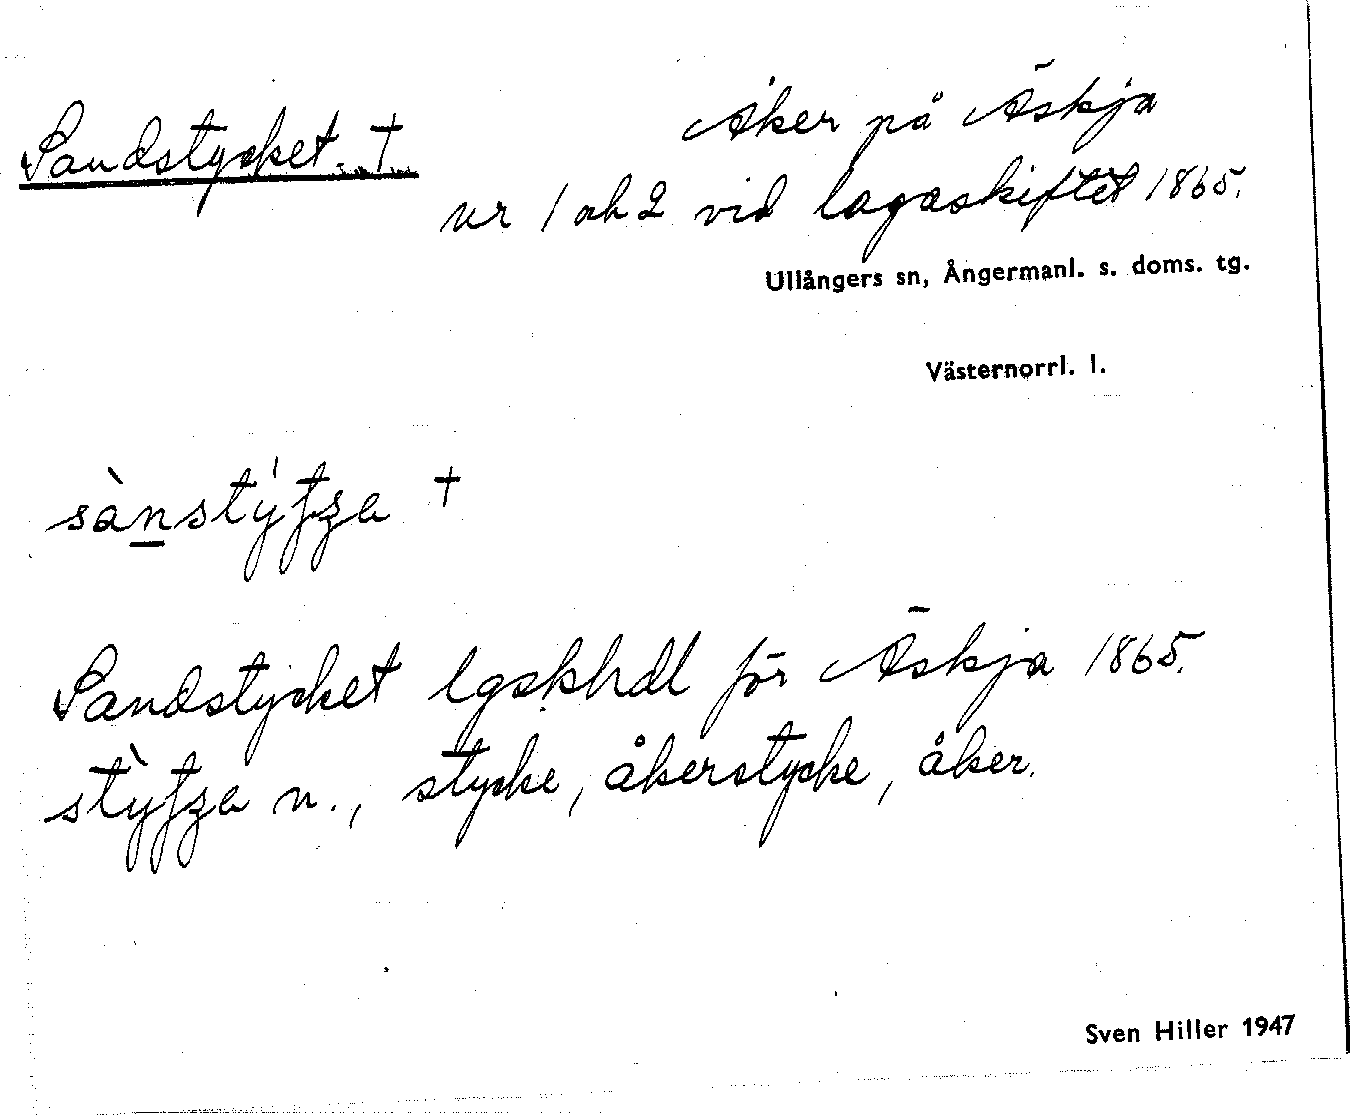 Sandstycket †
Åker på Äskja
nr 1 och 2 vid lagaskiftet 1865.
Ullångers sn, Ångermanl. s. doms. tg.
Västernorrl. l.
†
Sandstycket lgskhdl för Äskja 1865.
n., stycke, åkerstycke, åker.
Sven Hiller 1947